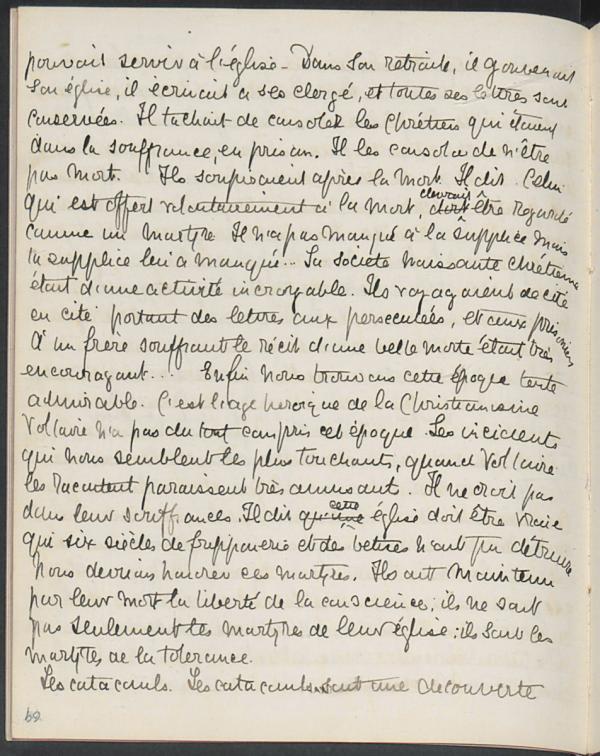 pouvait servir à l'église - Dans son retraite, il gouvernait
son église, il ecrivait a ses clergé, et toutes ses lettres sont
conservées. Il tachait de consoler les Chrétiens qui étaient
dans la souffrance, en prison. Il les consola de n'être
pas mort. Ils soupiraient après la mort. Il dit. Celui
qui est offert volontairement à la mort, devrait être regardé
comme un martyre Il n'a pas manqué à la supplice mais
la supplice lui a manqué... La Société naissante chrétienne
était d'une activité incroyable. Ils voyagaient de cité
en cité portant des lettres aux persecutées, et aux prisoniers
À un frère souffrant le récit d'une belle morte était très
encouragant... Enfin nous trouvons cette époque toute
admirable. C'est l'age heroique de la Christianisme
Voltaire n'a pas du tout compris cet époque Les incidents
qui nous semblent les plus touchants, quand Voltaire
les racontent paraissent très amusant. Il ne croit pas
dans leur souffrances. Il dit que cette église doit être vraie
qui six siècles de fripponerie et des betises n'ont pu detruire
Nous devrions honorer ces martyres. Ils ont maintenu
par leur mort la liberté de la conscience; ils ne sont
pas seulement les martyres de leur église; ils sont les
martyres de la tolerance.
Les catacombs. Les catacombs sont une decouverte
69